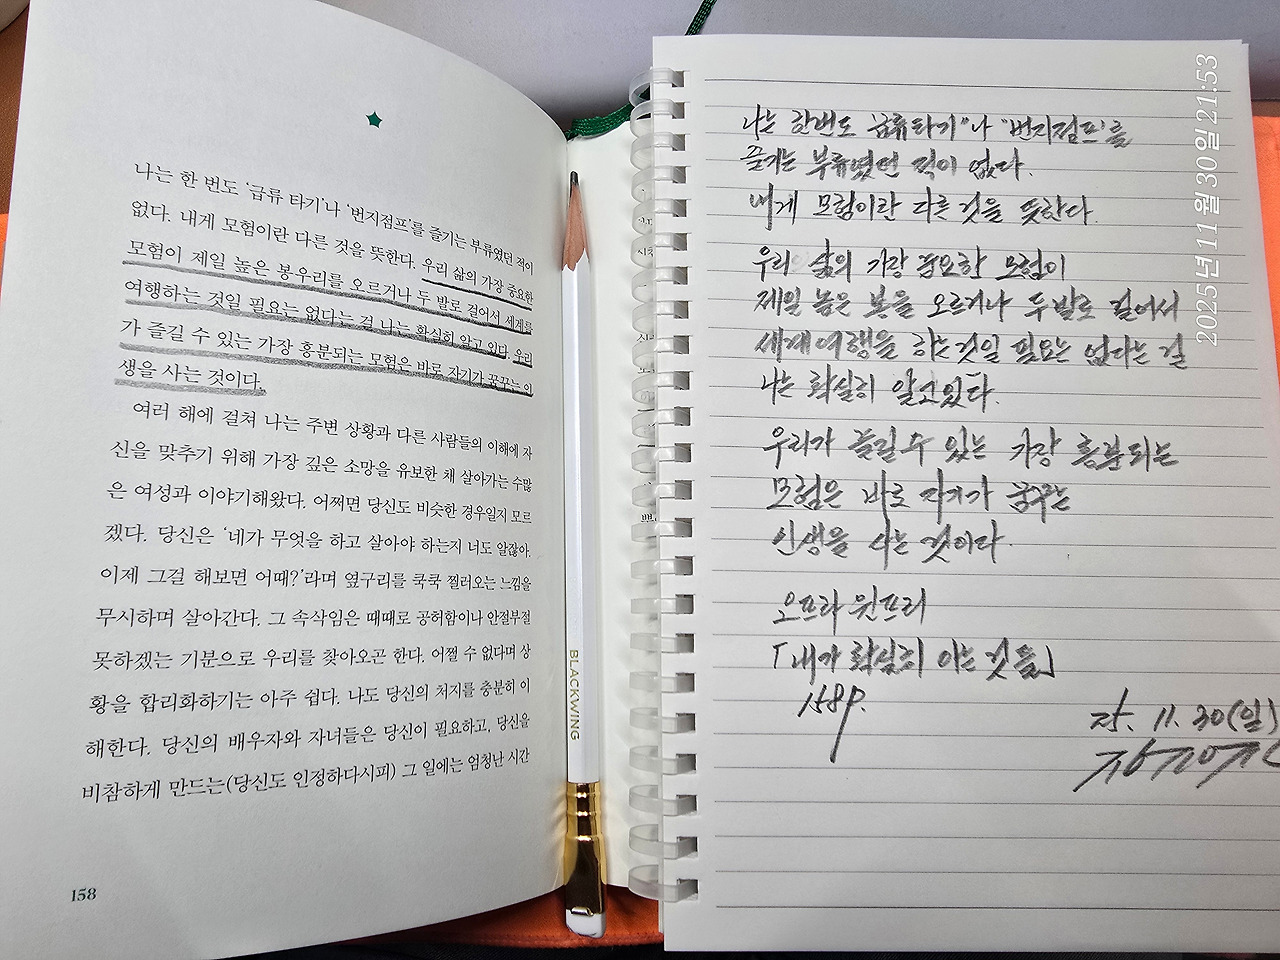 나는 한 번도 '급류 타기'나 '번지점프'를 즐기는 부류였던 적이
없다. 내게 모험이란 다른 것을 뜻한다. 우리 삶의 가장 중요한
모험이 제일 높은 봉우리를 오르거나 두 발로 걸어서 세계를
여행하는 것일 필요는 없다는 걸 나는 확실히 알고 있다. 우리
가 즐길 수 있는 가장 흥분되는 모험은 바로 자기가 꿈꾸는 인
생을 사는 것이다.
여러 해에 걸쳐 나는 주변 상황과 다른 사람들의 이해에 자
신을 맞추기 위해 가장 깊은 소망을 유보한 채 살아가는 수많
은 여성과 이야기해왔다. 어쩌면 당신도 비슷한 경우일지 모르
겠다. 당신은 '네가 무엇을 하고 살아야 하는지 너도 알잖아.
이제 그걸 해보면 어때?'라며 옆구리를 쿡쿡 찔러오는 느낌을
무시하며 살아간다. 그 속삭임은 때때로 공허함이나 안절부절
못하겠는 기분으로 우리를 찾아오곤 한다. 어쩔 수 없다며 상
황을 합리화하기는 아주 쉽다. 나도 당신의 처지를 충분히 이
해한다. 당신의 배우자와 자녀들은 당신이 필요하고, 당신을
비참하게 만드는(당신도 인정하다시피) 그 일에는 엄청난 시간
158
BLACKWING
나는 한번도 급류타기"나 "번지점프'를
즐기는 부류였던 적이 없다.
내게 모험이란 다른 것을 뜻한다.
우리 삶의 가장 중요한 모험이
제일 높은 봉을 오르거나 두발로 걸어서
세계여행을 하는것일 필요는 없다는 걸
나는 확실히 알고있다.
우리가 즐길수 있는 가장 흥분되는
모험은 바로 자기가 꿈꾸는
인생을 사는 것이다.
오프라 윈프리
「내가 확실히 아는 것들」
158p.
25. 11. 30(일)
2025년 11월 30일 21:53